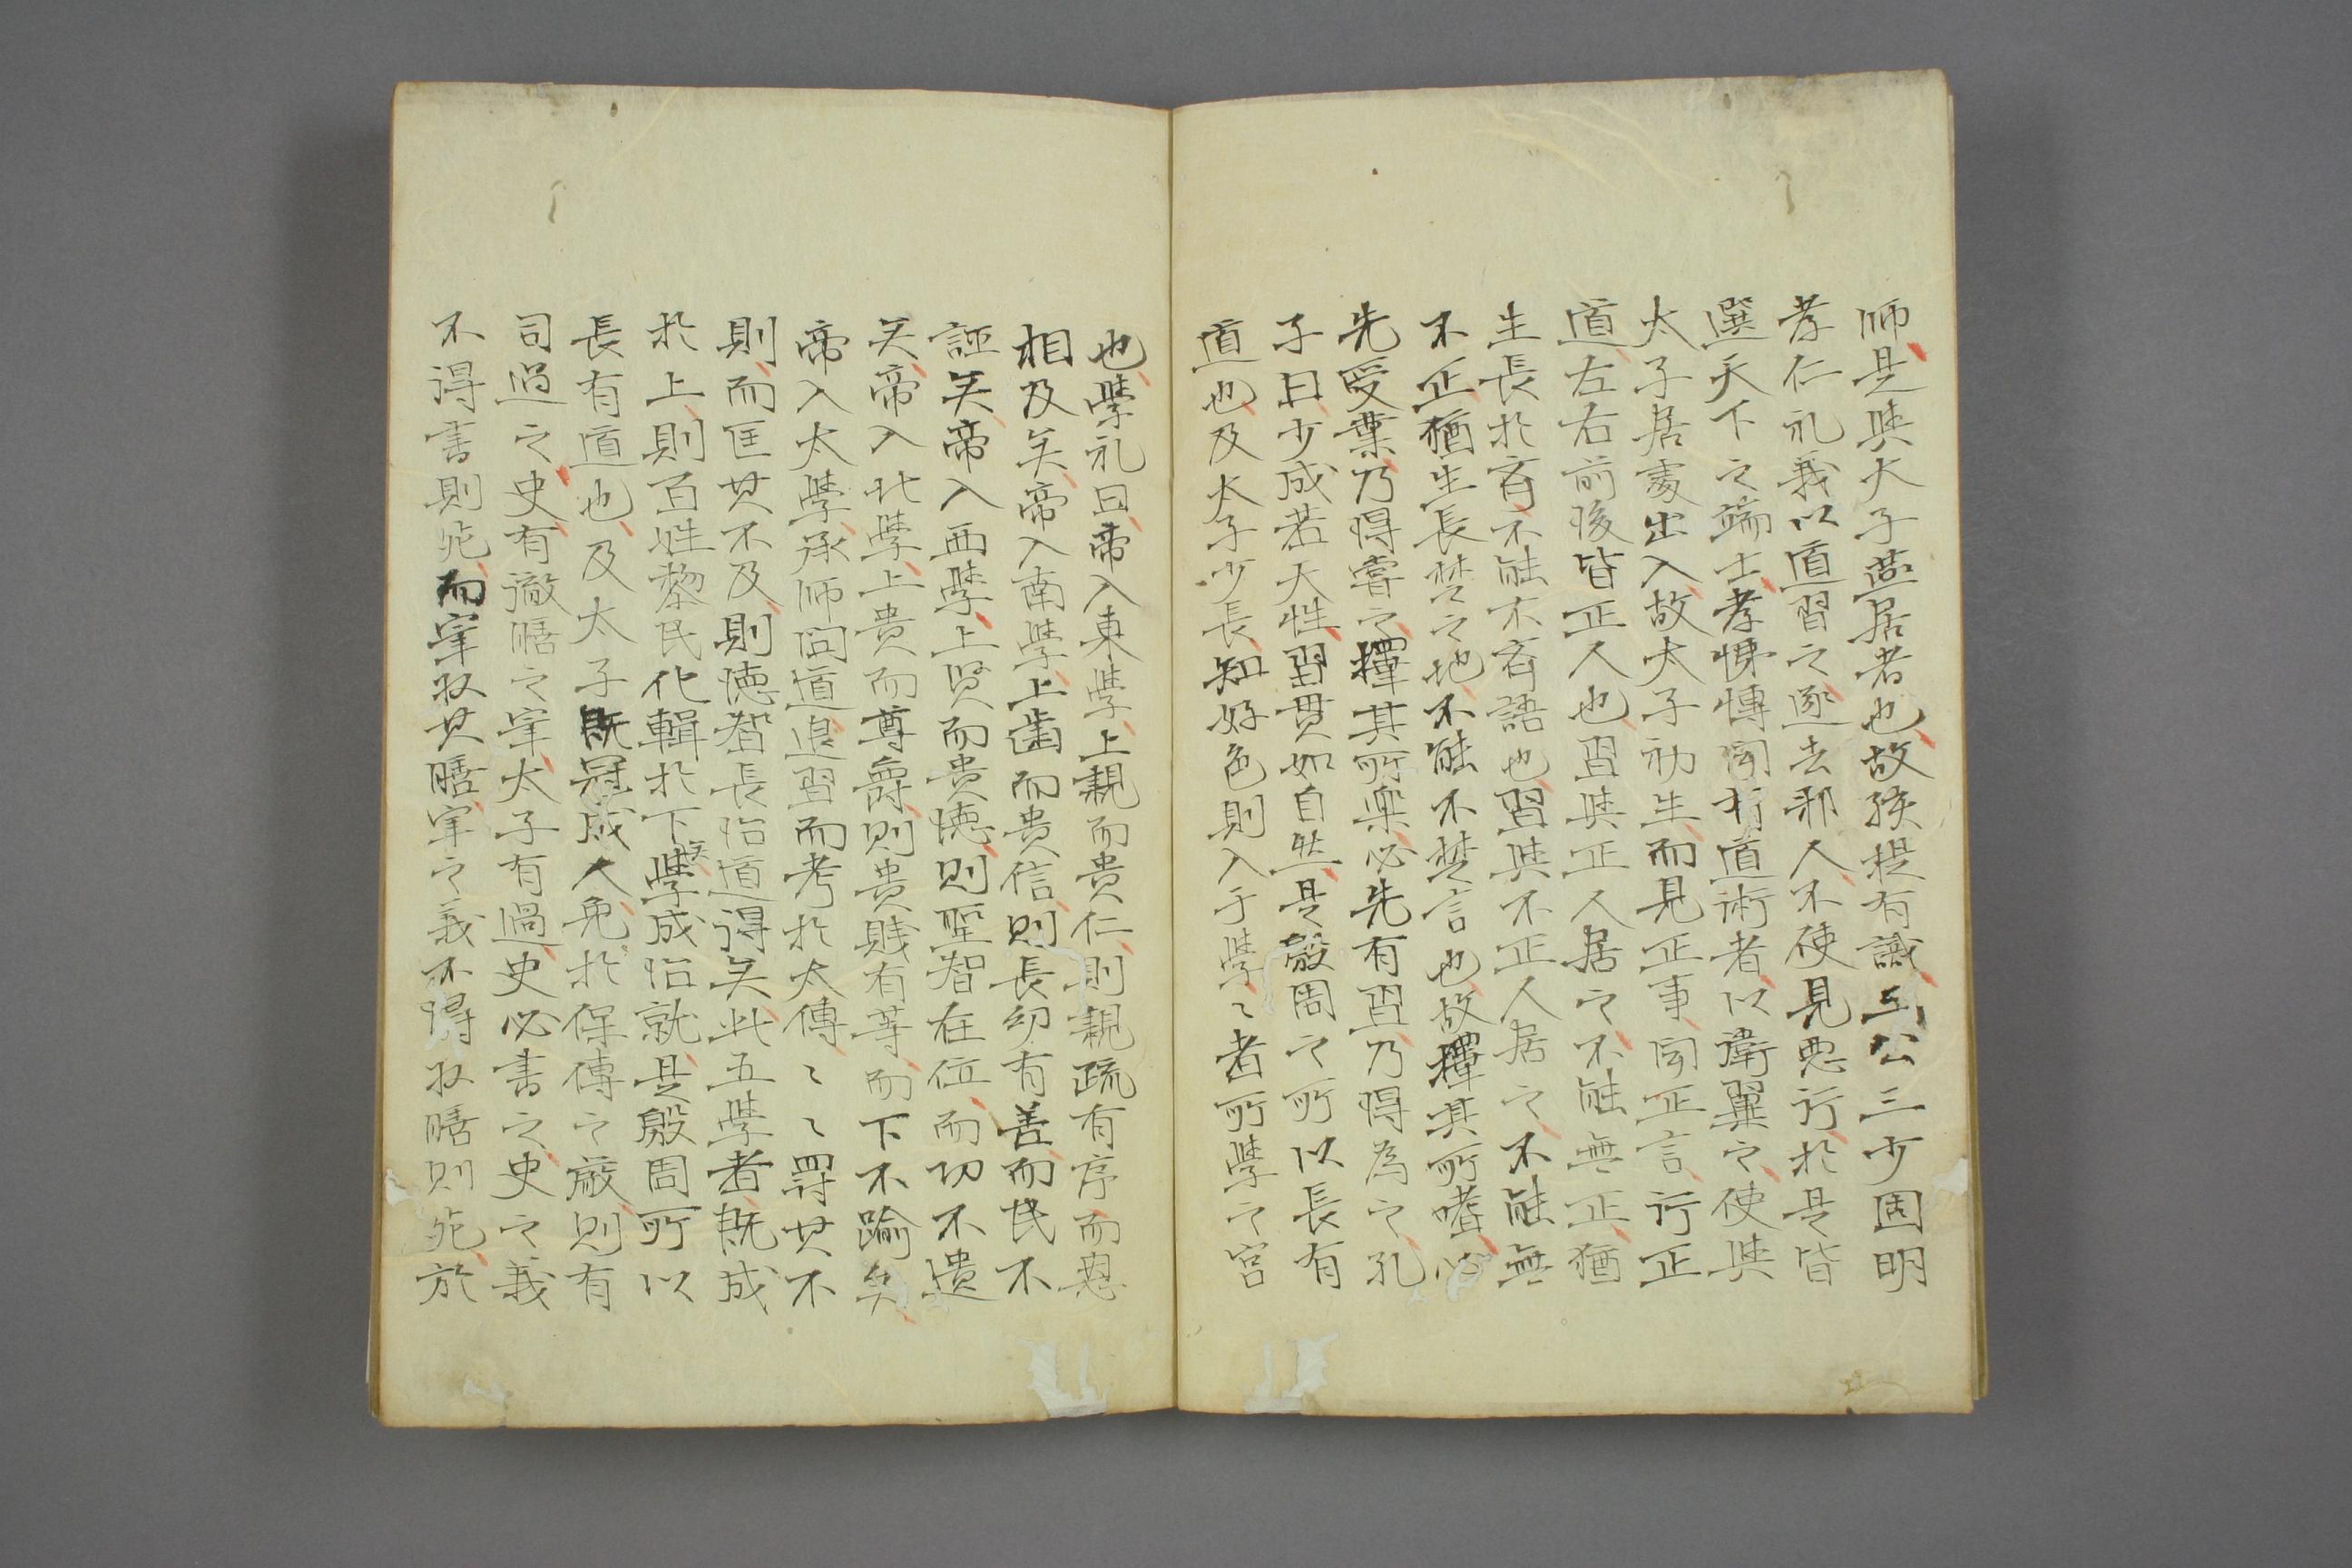 師是與太子燕居者也故孩提有識三公三少固明
孝仁礼義以道習之逐去邪人不使見悪行於是皆
選天下之端士孝悌博聞有道術者以衛翼之使與
太子居處出入故太子初生而見正事聞正言行正
道左右前後皆正人也習與正人居之不能無正猶
生長於斉不能不斉語也習與不正人居之不能無
不正猶生長楚之地不能不楚言也故擇其所嗜必
先受業乃得嘗之擇其所楽必先有習乃得為之孔
子曰少成若天性習貫如自然是殷周之所以長有
道也及太子少長知好色則入于學〻者所學之宮
也學礼曰帝入東學上親而貴仁則親疏有序而恩
相及矣帝入南學上歯而貴信則長幼有善而民不
誣矣帝入西學上賢而貴徳則聖智在位而功不遺
矣帝入北學上貴而尊爵則貴賤有等而下不踰矣
帝入太學承師問道退習而考於太傅〻〻罸其不
則而匡其不及則徳智長治道得矣此五學者既成
於上則百姓黎民化輯於下矣學成治就是殷周所以
長有道也及太子既冠成人免於保傅之厳則有
司過之史有徹膳之宰太子有過史必書之史之義
不得書則死而宰収其膳宰之義不得収膳則死於